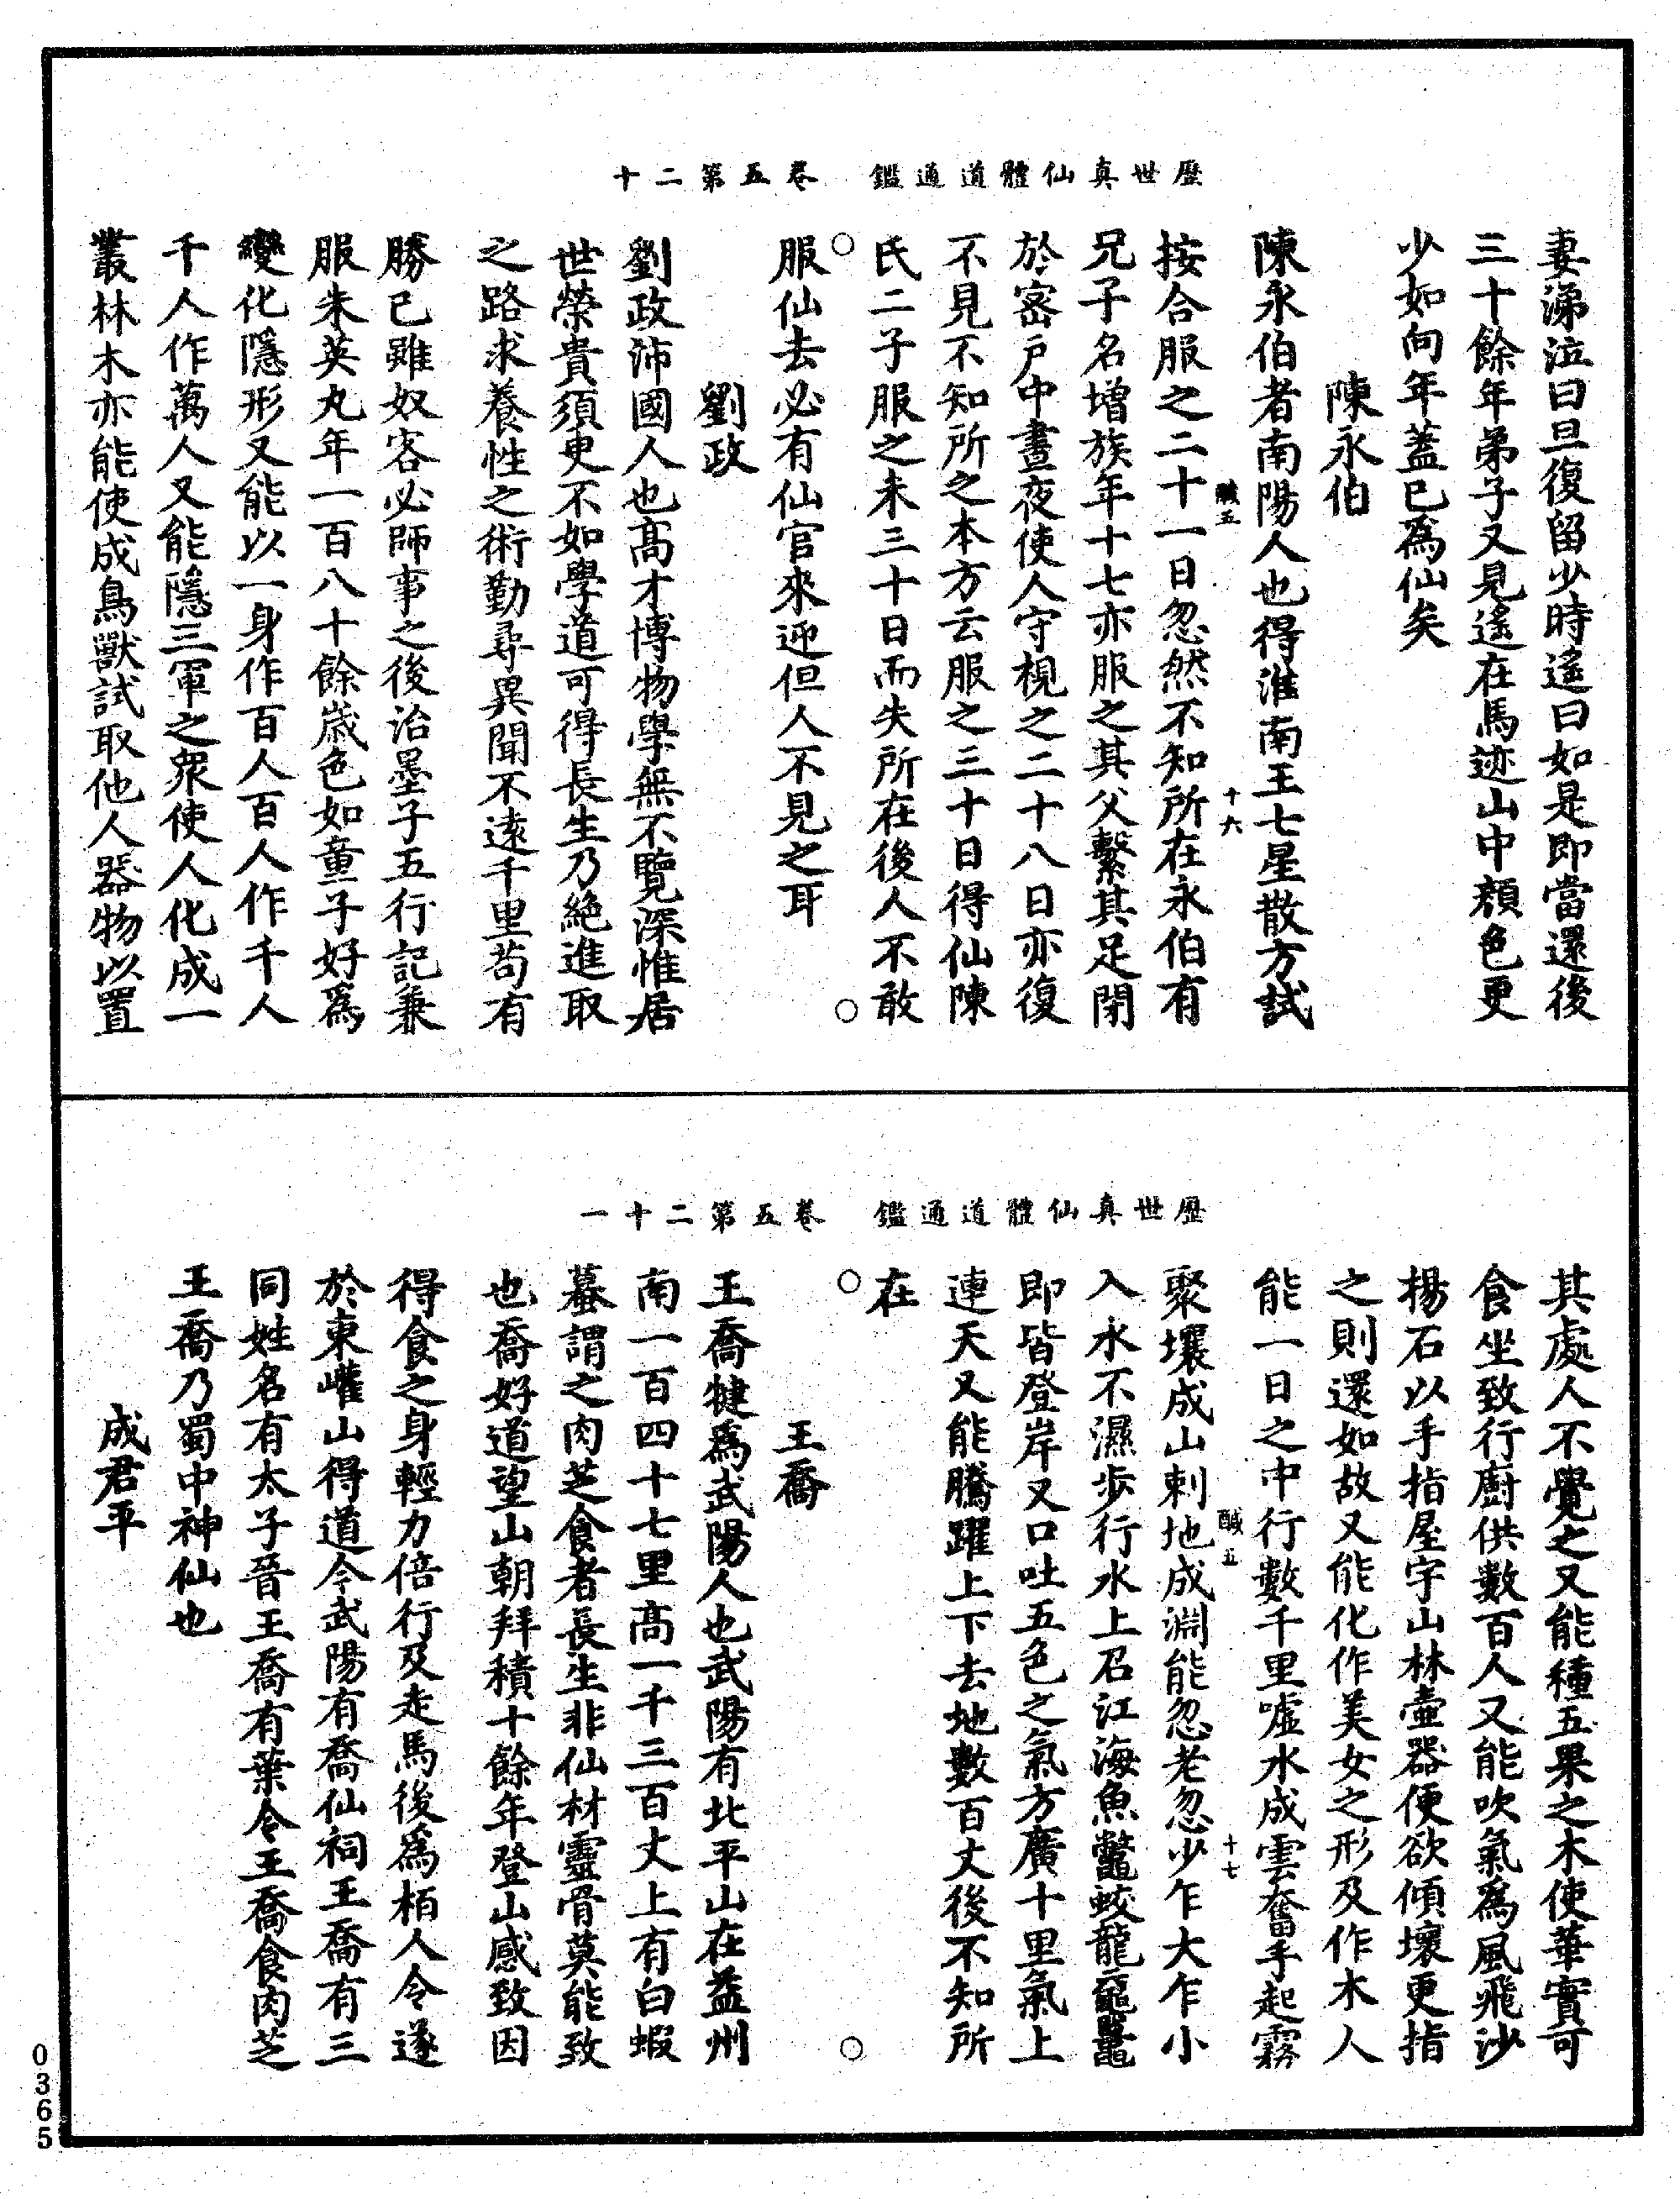 歷世真仙體道通鑑　卷五第二十
妻涕泣曰旦復留少時遙曰如是即當還後
三十餘年弟子又見遙在馬迹山中顏色更
少如向年蓋已爲仙矣
陳永伯
陳永伯者南陽人也得淮南王七星散方試
鹹五　十六
按合服之二十一日忽然不知所在永伯有
兄子名增族年十七亦服之其父繫其足閉
於密戶中晝夜使人守視之二十八日亦復
不見不知所之本方云服之三十日得仙陳
氏二子服之未三十日而失所在後人不敢
服仙去必有仙官來迎但人不見之耳
劉政
劉政沛國人也高才博物學無不覽深惟居
世榮貴須臾不如學道可得長生乃絶進取
之路求養性之術勤尋異聞不遠千里苟有
勝已雖奴客必師事之後治墨子五行記兼
服朱英丸年一百八十餘歲色如童子好爲
變化隱形又能以一身作百人百人作千人
千人作萬人又能隱三軍之衆使人化成一
叢林木亦能使成鳥獸試取他人器物以置
歷世真仙體道通鑑　卷五第二十一
其處人不覺之又能種五果之木使華實可
食坐致行廚供數百人又能吹氣爲風飛沙
揚石以手指屋宇山林壷器便欲傾壞更指
之則還如故又能化作美女之形及作木人
能一日之中行數千里噓水成雲奮手起霧
鹹五　十七
聚壤成山刺地成淵能忽老忽少乍大乍小
入水不濕步行水上召江海魚鼈蛟龍黿鼉
即皆登岸又口吐五色之氣方廣十里氣上
連天又能騰躍上下去地數百丈後不知所
在
王喬
王喬犍爲武陽人也武陽有北平山在益州
南一百四十七里高一千三百丈上有白蝦
蟇謂之肉芝食者長生非仙材靈骨莫能致
也喬好道望山朝拜積十餘年登山感致因
得食之身輕力倍行及走馬後爲栢人令遂
於東巏山得道今武陽有喬仙祠王喬有三
同姓名有太子晉王喬有葉令王喬食肉芝
王喬乃蜀中神仙也
成君平
0365